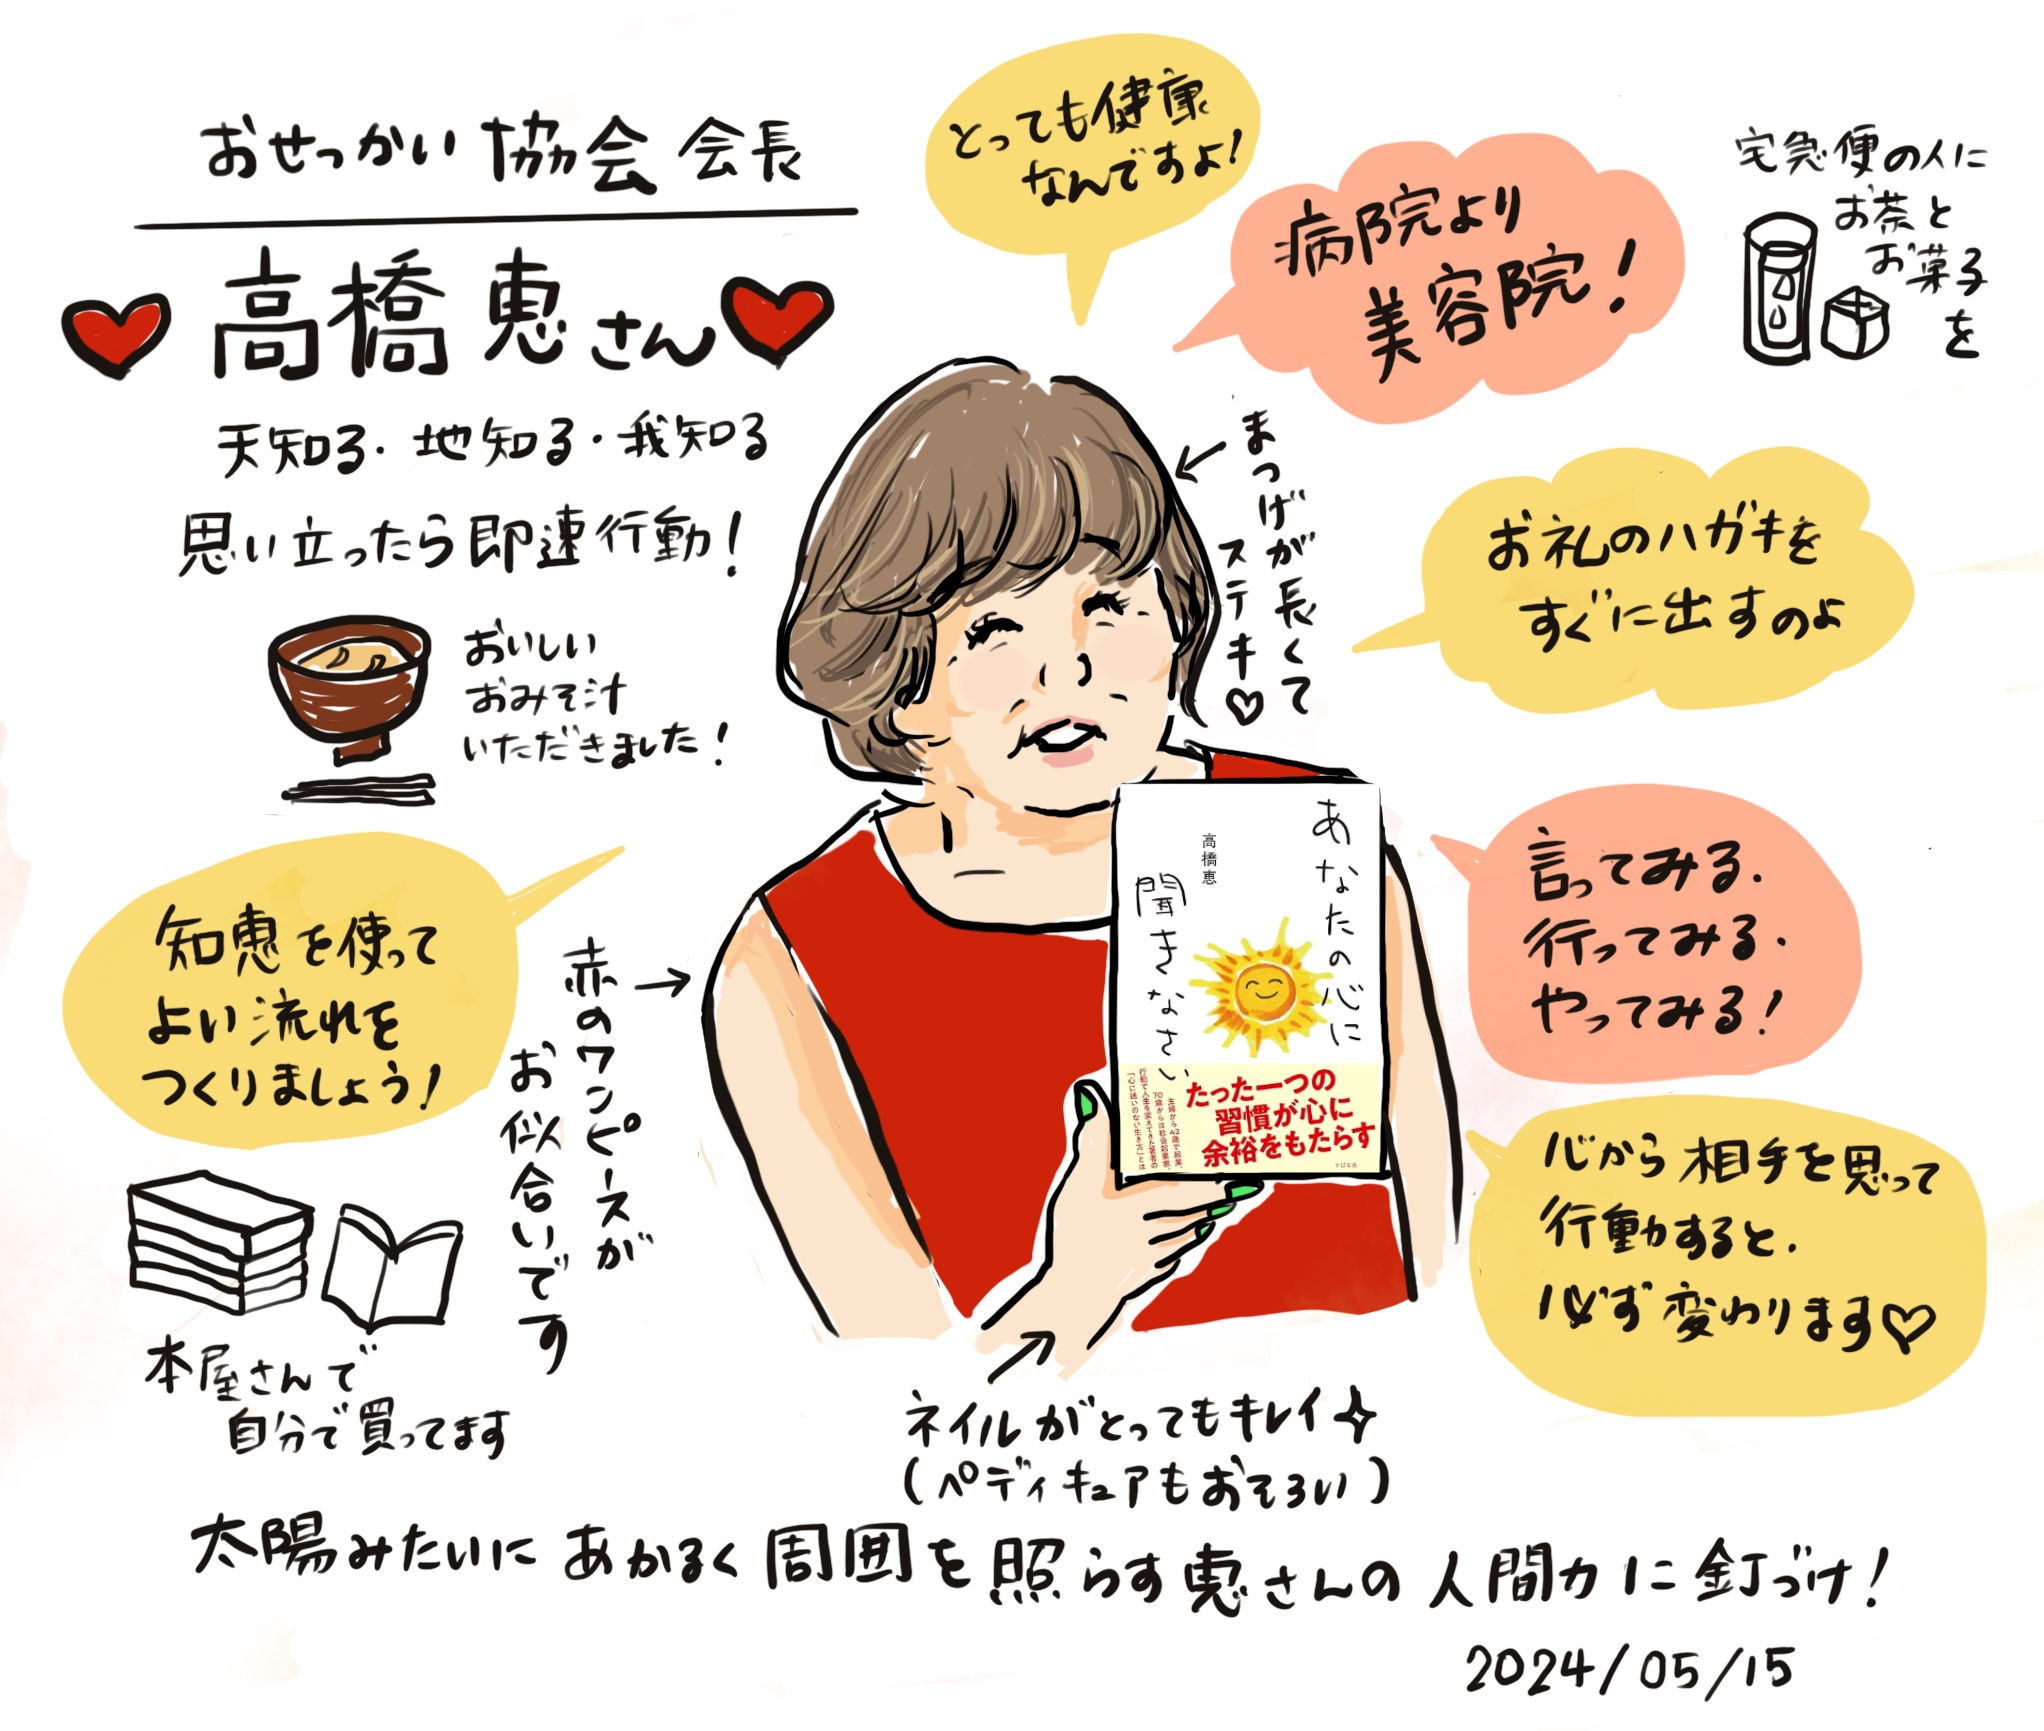 おせっかい協会 会長
高橋恵さん
天知る・地知る・我知る
思い立ったら即速行動！
おいしい
おみそ汁
いただきました！
とっても健康
なんですよ！
病院より
美容院！
宅急便の人に
お茶と
お菓子
を
まつげが長くて
ステキ♡
お礼のハガキを
すぐに出すのよ
言ってみる．
行ってみる．
やってみる！
心から相手を思って
行動すると．
必ず変わります♡
知恵を使って
よい流れを
つくりましょう！
赤のワンピースが
お似合いです
あなたの心に
聞きなさい
高橋恵
たった一つの
習慣が心に
余裕をもたらす
主婦から42歳で起業、
70歳からは社会起業家、
行動で人生を変えてきた著者の
「心に迷いのない生き方」とは
すばる舎
本屋さんで
自分で買ってます
ネイルがとってもキレイ
(ペディキュアもおそろい)
太陽みたいにあかるく周囲を照らす恵さんの人間力に釘づけ！
2024/05/15